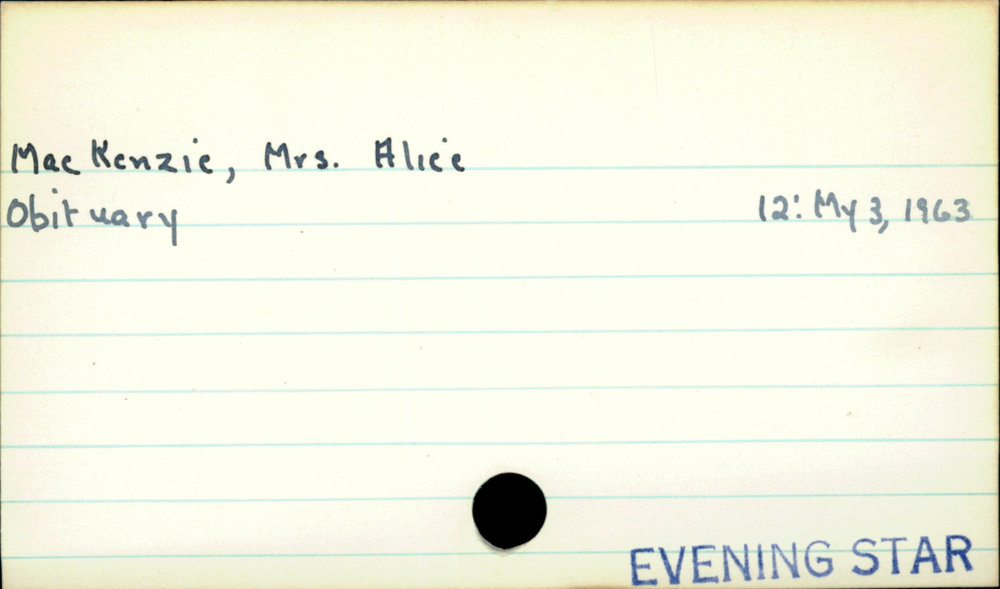 MacKenzie, Mrs. Alice
Obituary 12: My 3, 1963
EVENING STAR